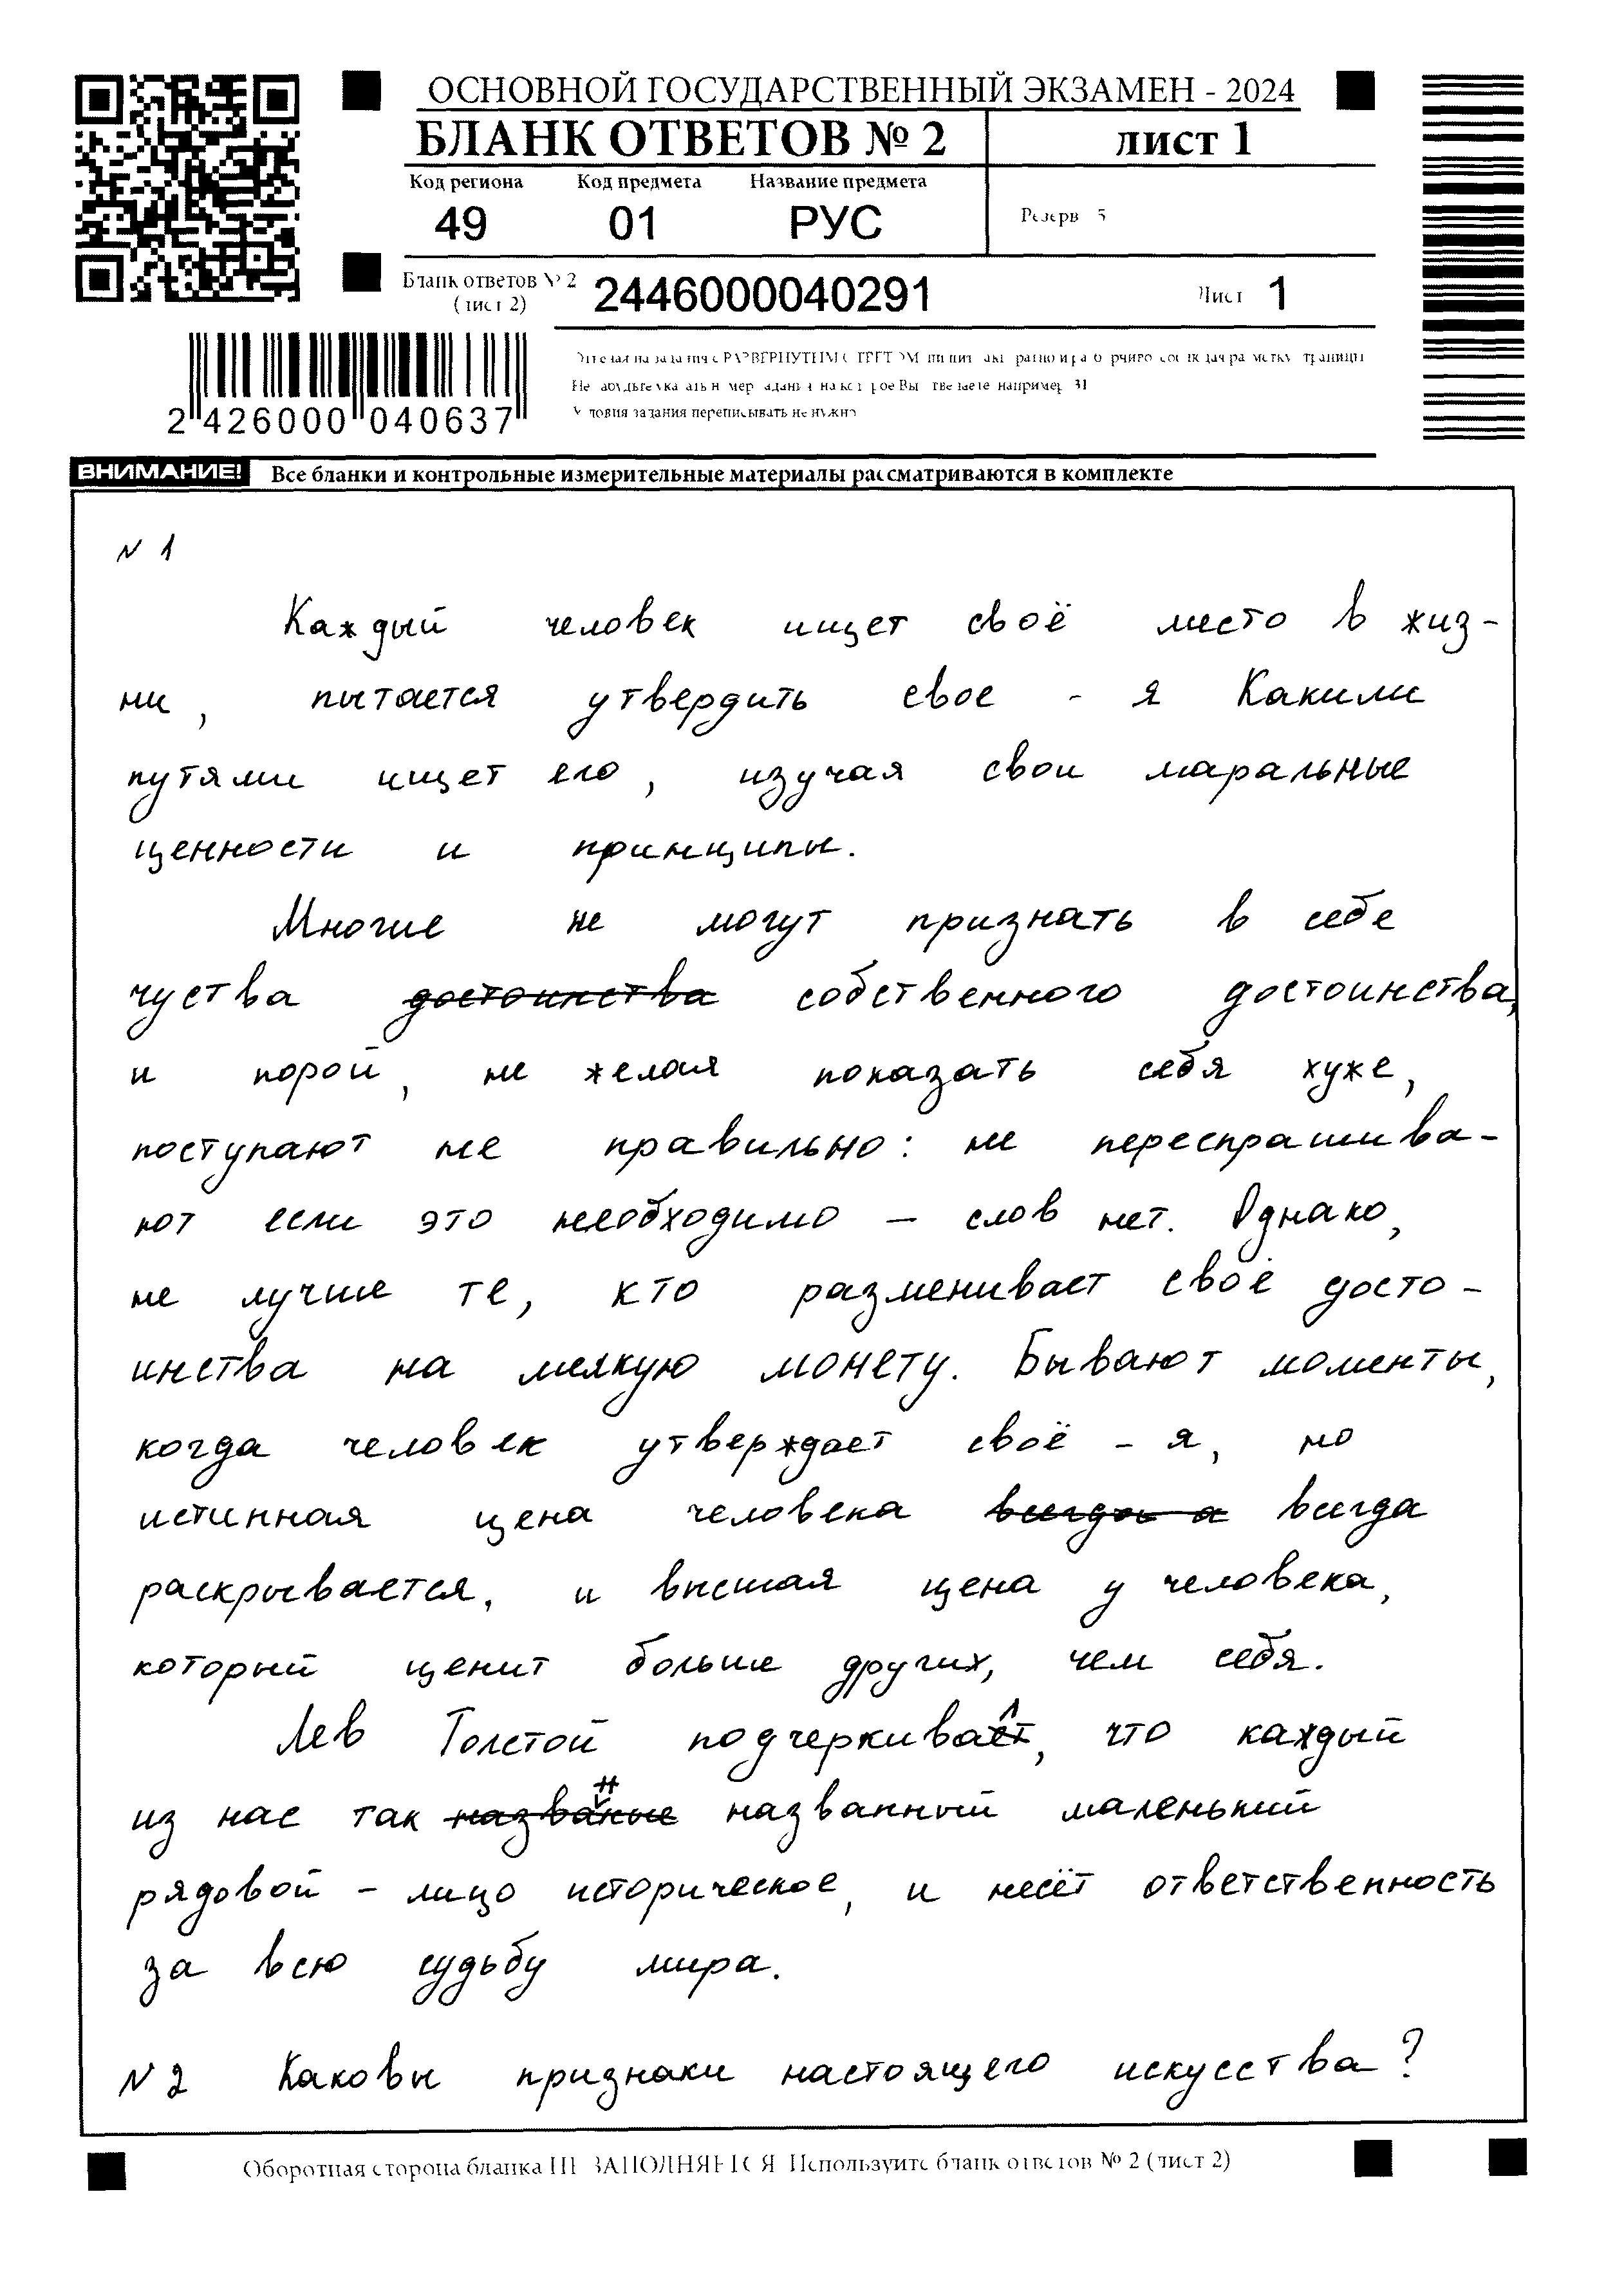 ОСНОВНОЙ ГОСУДАРСТВЕННЫЙ ЭКЗАМЕН - 2024
БЛАНК ОТВЕТОВ № 2 лист 1
Код региона Код предмета Название предмета
49 01 РУС
Резерв 5
Бланк ответов № 2 (лист 2) 2446000040291 Лист 1
2 426000 040637
Условия задания переписывать не нужно
ВНИМАНИЕ! Все бланки и контрольные измерительные материалы рассматриваются в комплекте
N 1
Каждый человек ищет своё место в жиз-
ни, пытается утвердить свое - я Какими
путями ищет его, изучая свои маральные
ценности и принципы.
Многие не могут признать в себе
чуства достоинства собственного достоинства,
и порой, не желая показать себя хуже,
поступают не правильно: не переспрашива-
ют если это необходимо – слов нет. Однако,
не лучше те, кто разменивает своё досто-
инства на мелкую монету. Бывают моменты,
когда человек утверждает своё - я, но
истинная цена человека всегда а всегда
раскрывается, и высшая цена у человека,
который ценит больше других, чем себя.
Лев Толстой подчеркивает, что каждый
из нас так названные названный маленький
рядовой – лицо историческое, и несёт ответственность
за всю судьбу мира.
N 2 Каковы признаки настоящего искусства?
Оборотная сторона бланка НЕ ЗАПОЛНЯЕТСЯ Используйте бланк ответов № 2 (лист 2)